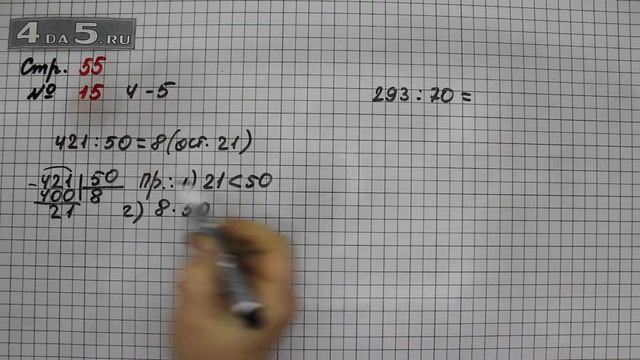 4 DA 5.RU
Стр. 55
№ 15 4-5
421 : 50 = 8 (ост. 21)
293 : 70 =
- 421 | 50
400 | 8
21
Пр.: 1) 21 < 50
2) 8 · 50